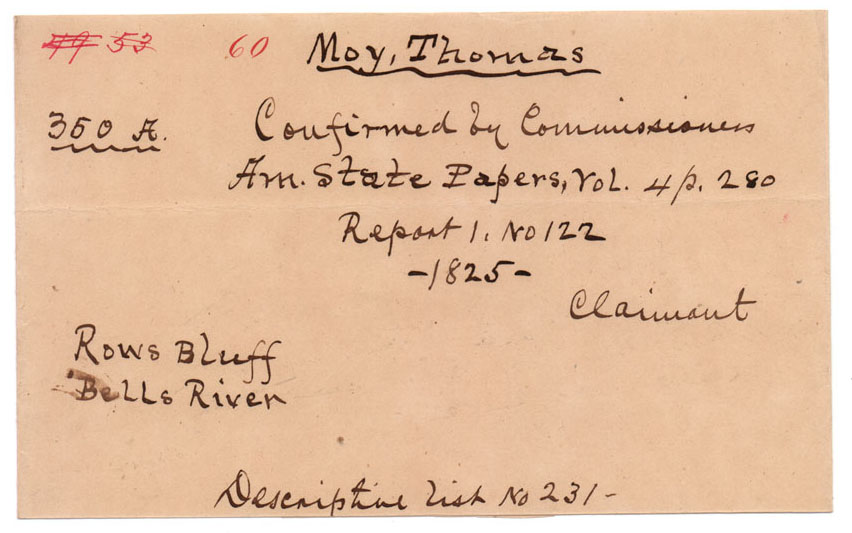 49 53 60 Moy, Thomas
350 A. Confirmed by Commissioners
Am. State Papers, Vol. 4 p. 280
Report 1, No 122
-1825-
Claimant
Rows Bluff
Bells River
Descriptive list No 231-